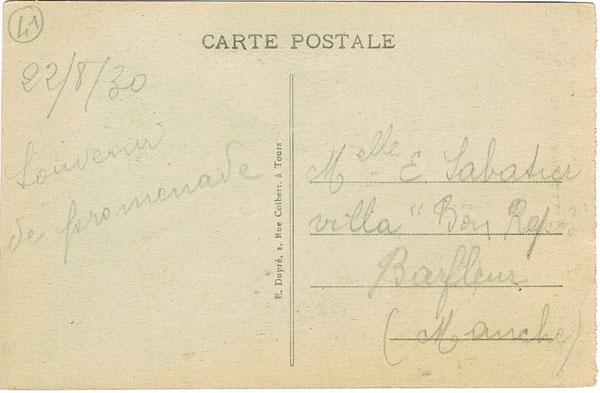 41
CARTE POSTALE
22/8/30
Souvenir
de promenade
E. Dupré, 2, Rue Colbert, à Tours
Melle E. Sabatier
villa "Bon Repos
Barfleur
(Manche)